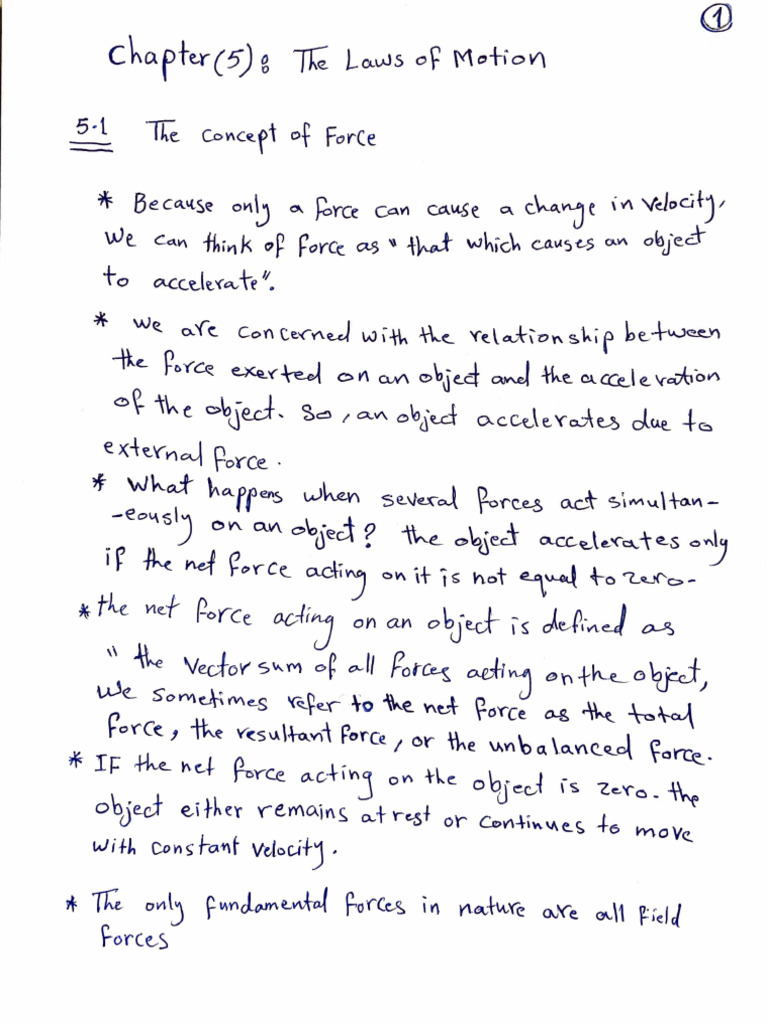 1
Chapter(5): The Laws of Motion
5.1 The concept of Force
* Because only a force can cause a change in velocity,
we can think of force as " that which causes an object
to accelerate".
* we are concerned with the relationship between
the force exerted on an object and the acceleration
of the object. So, an object accelerates due to
external force.
* What happens when several forces act simultan-
-eously on an object? the object accelerates only
if the net force acting on it is not equal to zero.
* the net force acting on an object is defined as
" the vector sum of all forces acting on the object,
we sometimes refer to the net force as the total
force, the resultant force, or the unbalanced force.
* IF the net force acting on the object is zero. the
object either remains at rest or continues to move
with constant velocity.
* The only fundamental forces in nature are all field
forces